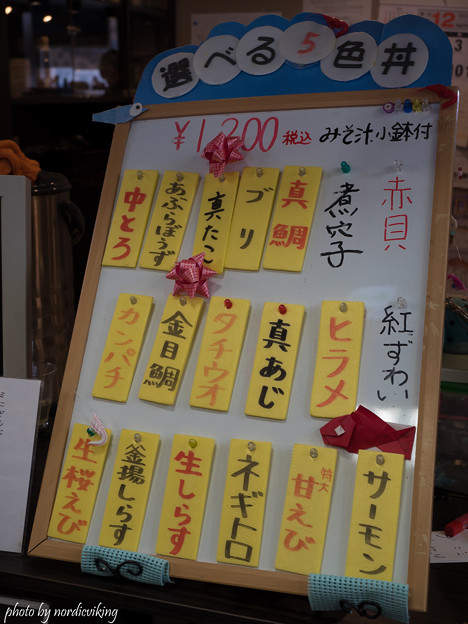 選べる5色丼
¥1,200 税込 みそ汁.小鉢付
赤貝
煮穴子
真鯛
ブリ
真たこ
あぶらぼうず
中とろ
紅ずわい
ヒラメ
真あじ
タチウオ
金目鯛
カンパチ
サーモン
特大
甘えび
ネギトロ
生しらす
釜揚しらす
生桜えび
photo by nordicviking